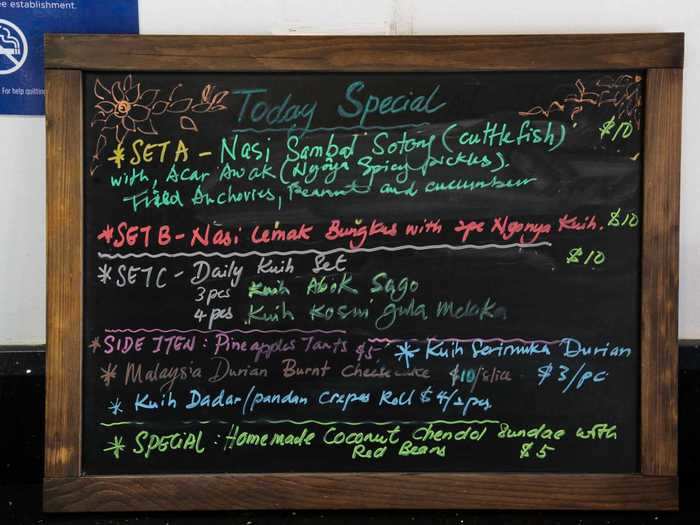 ee establishment.
For help quitting
Today Special
*SET A - Nasi Sambal Sotong (cuttlefish) $10
with, Acar Awak (Ngoya Spicy Pickles).
Fried Anchovies, Peanut and cucumber
*SET B - Nasi Lemak Bungkus with 2pc Ngonya Kuih. $10
*SET C - Daily Kuih Set $10
3 pcs Kuih Abok Sago
4 pcs Kuih Kosui gula Melaka
*SIDE ITEM: Pineapples Tarts $5 * Kuih Serimuka Durian
* Malaysia Durian Burnt Cheesecake $10/slice $3/pc
* Kuih Dadar/pandan Crepes Roll $4/2pcs
* SPECIAL: Homemade Coconut Chendol Sundae with
Red Beans $5